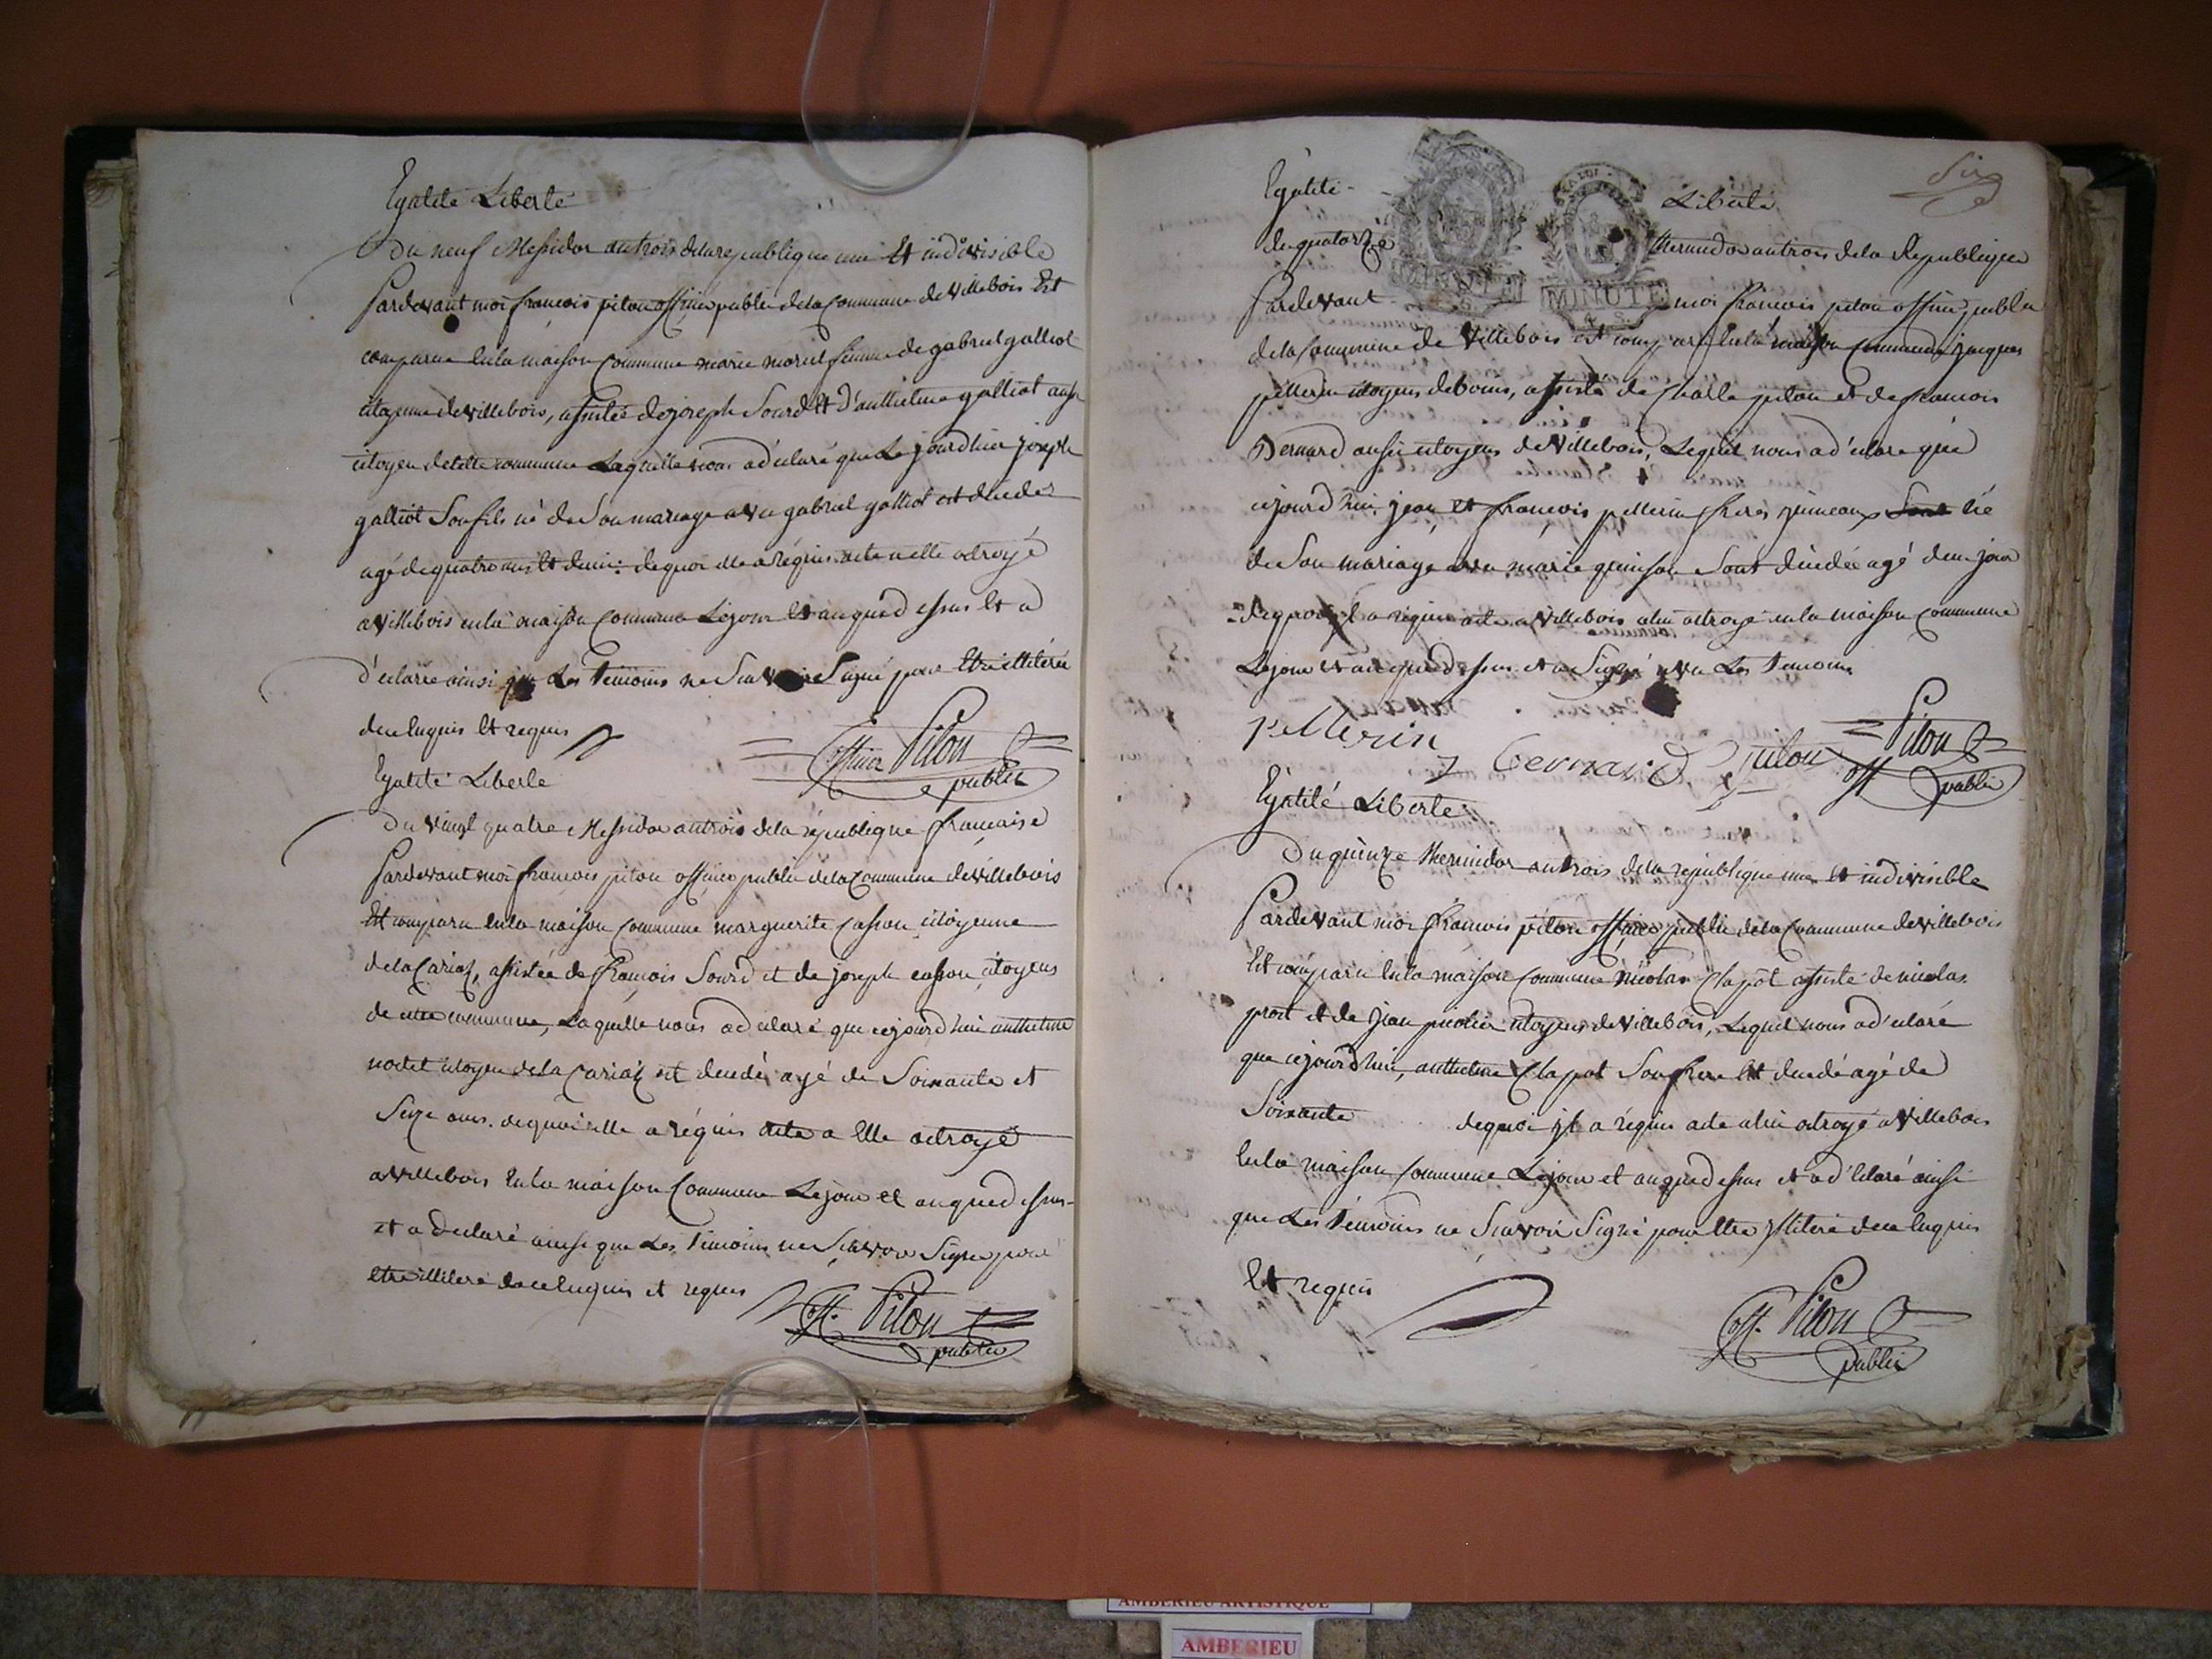 Egalité Liberté
Du neuf Messidor an trois de la republique une Et indivisible
Pardevant moi françois piton officier public de la Commune de Villebois Est
comparue en la maison Commune marie moriel femme de gabriel galliot
citoyenne de villebois, assistée de joseph Sourd Et d'anthelme galliot aussi
citoyen de cette commune Laquelle nous a déclaré que Le jourdhier joseph
galliot Son fils né de Son mariage avec gabriel galliot est décédé
agé de quatre ans Et demi: de quoi elle a réquis acte a elle octroyé
a Villebois en la maison Commune Le jour Et an que dessus Et a
déclaré ainsi que Les Temoins ne Scavoir Signé pour Etre illiterée
de ce Enquis Et requis
officier Piton public
Egalité Liberté
Du vingt quatre Messidor an trois de la république française
Pardevant moi françois piton officier public de la Commune de villebois
Est comparu en la maison Commune marguerite Casson citoyenne
de la Cariaz, assistée de françois Sourd et de joseph casson citoyens
de cette commune, Laquelle nous a déclaré que cejourd'hui anthelme
nodet citoyen de la Cariaz est décédé agé de Soixante et
Seize ans. de quoi elle a réquis acte a Elle octroyé
a Villebois En la maison Commune Le jour et an que dessus
et a declaré ainsi que Les Temoins ne Scavoir Signé pour
etre illiteré de ce Enquis et requis
off. Piton public
Six
Egalité Liberté
MINUTE MINUTE
du quatorze thermidor an trois de la Republique
Pardevant moi françois piton officier public
de la Commune de Villebois est comparu En la maison Commune jacques
pellerin citoyens de bouis, assisté de Charle piton et de francois
Bernard aussi citoyens de Villebois, Lequel nous a déclaré que
cejourd'hui jean et françois pellerin freres jumeaux né
de Son mariage avec marie quinson Sont décédée agé d'un jour
de quoi jl a réquis acte a Villebois a lui octroyé en la maison Commune
Le jour et an que dessus et a Signé avec Les Temoins
pellerin bernard piton Piton off public
Egalité Liberté
Du quinze thermidor an trois de la république une et indivisible
Pardevant moi francois piton officier public de la Commune de villebois
Est comparu En la maison Commune nicolas Chapot assisté de nicolas
prost et de jean citoyens de Villebois, Lequel nous a déclaré
que cejourd'hui, anthelme Chapot Son frere Est décédé agé de
Soixante de quoi jl a réquis acte a lui octroyé a Villebois
En la maison Commune Le jour et an que dessus et a déClaré ainsi
que Les Témoins ne Scavoir Signé pour Etre jlliteré de ce Enquis
Et requis
off. Piton public
AMBERIEU ARTISTIQUE
AMBERIEU